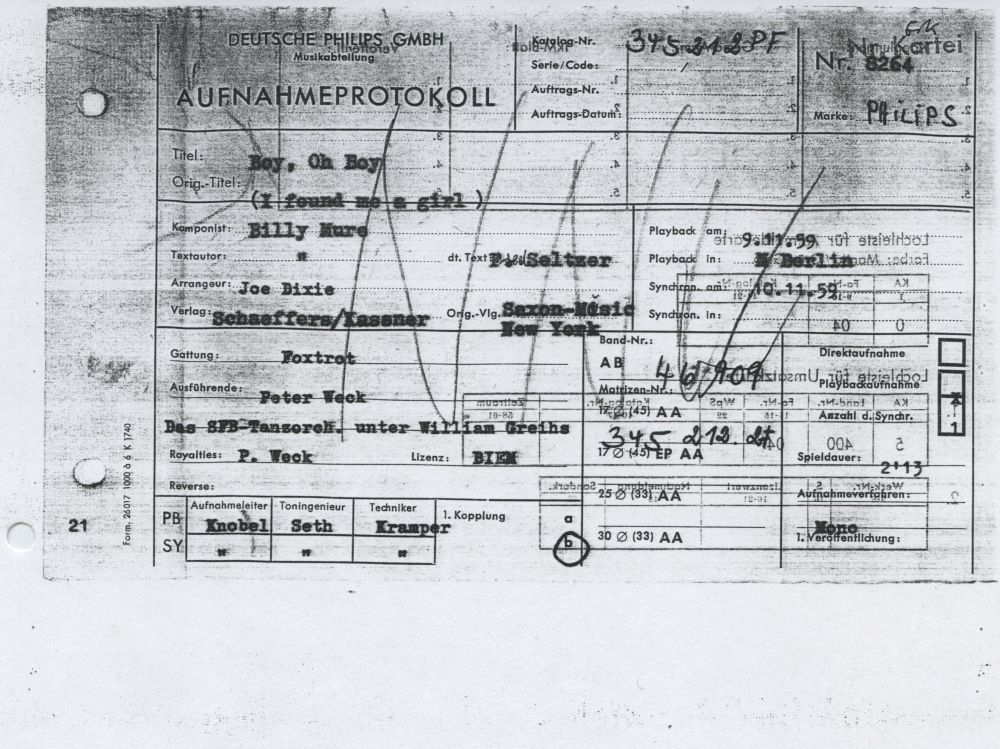 DEUTSCHE PHILIPS GMBH
Musikabteilung
AUFNAHMEPROTOKOLL
Katalog-Nr. 345 212 PF
Serie/Code:
Auftrags-Nr.
Auftrags-Datum:
Kartei
Nr. 8264
Marke: PHILIPS
Titel: Boy, Oh Boy
Orig.-Titel: (I found me a girl )
Komponist: Billy Mure
Textautor: "
dt. Text P. Seltzer
Arrangeur: Joe Dixie
Verlag: Schaeffers/Kassner
Orig.-Vlg. Saxon-Music
New York
Playback am: 9.11.59
Playback in: Berlin
Synchron. am: 10.11.59
Synchron. in:
Gattung: Foxtrot
Ausführende: Peter Weck
Das SFB-Tanzorch. unter William Greihs
Royalties: P. Weck
Lizenz: BIEM
Reverse:
Band-Nr.:
AB 46909
Matrizen-Nr.:
17 ∅ (45) AA
345 212. 2+
17 ∅ (45) EP AA
25 ∅ (33) AA
30 ∅ (33) AA
Direktaufnahme
Playbackaufnahme x
Anzahl d. Synchr. 1
Spieldauer: 2'13
Aufnahmeverfahren:
Mono
1. Veröffentlichung:
Aufnahmeleiter Toningenieur Techniker
PB Knobel Seth Kramper
SY " " "
1. Kopplung
a
b
21
Form. 26017 1000 à 6 K 1740